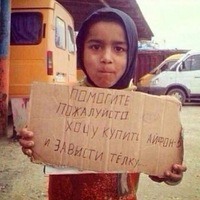 ПОМОГИТЕ
ПОЖАЛУЙСТО
ХОЧУ КУПИТЬ АЙФОН-5
И ЗАВЕСТИ ТЁЛКУ